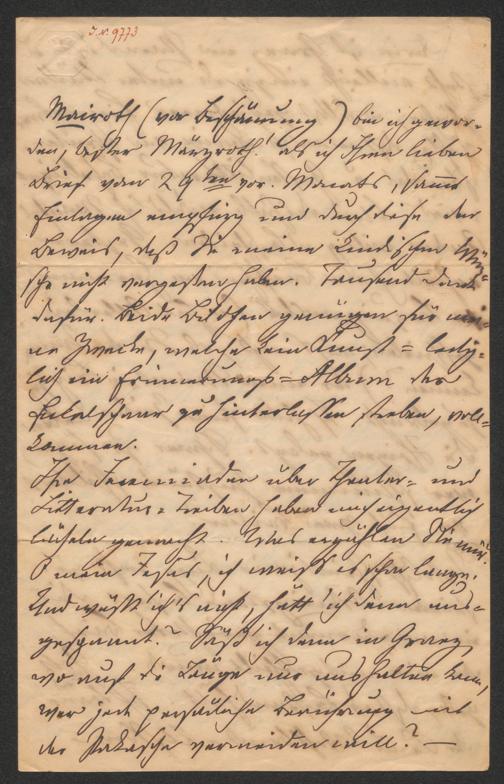 I. N. 9773
Mairoth (vor Beschämung) bin ich gewor-
den, bester Märzroth! als ich Ihren lieben
Brief vom 29ten vor. Monats, sammt
Einlagen empfing und durch diese den
Beweis, daß Sie meine kindischen Wün-
sche nicht vergessen haben. Tausend Dank
dafür. Beide Bildchen genügen für mei-
ne Zwecke, welche kein Kunst= ledig-
lich ein Erinnerungs=Album der
Enkelschaar zu hinterlassen streben, voll-
kommen.
Ihre Jeremiaden über Theater= und
Litteratur=Treiben haben mich eigentlich
lächeln gemacht. Was erzählen Sie mir.
O mein Jesus, ich weiß es schon lange.
Und wüßt' ich's nicht, hätt' ich denn aus-
gespannt? Säß' ich denn in Graez,
wo auf die Länge nur aushalten kann,
wer jede persönliche Berührung mit
der vermeiden will? —